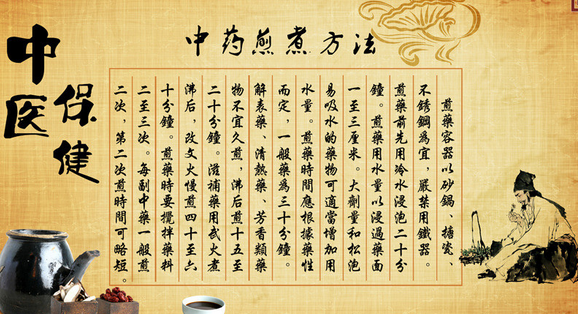 中药煎煮方法
中医
保健
煎藥容器以砂鍋、搪瓷、
不銹鋼為宜，嚴禁用鐵器。
煎藥前先用冷水浸泡二十分
鐘。煎藥用水量以浸過藥面
一至三厘米。大劑量和松泡
易吸水的藥物可適當增加用
水量。煎藥時間應根據藥性
而定，一般藥為三十分鐘。
解表藥、清熱藥、芳香類藥
物不宜久煎，沸后煎十五至
二十分鐘。滋補藥用武火煮
沸后，改文火慢煎四十至六
十分鐘。煎藥時要攪拌藥料
二至三次。每副中藥一般煎
二次，第二次煎時間可略短。